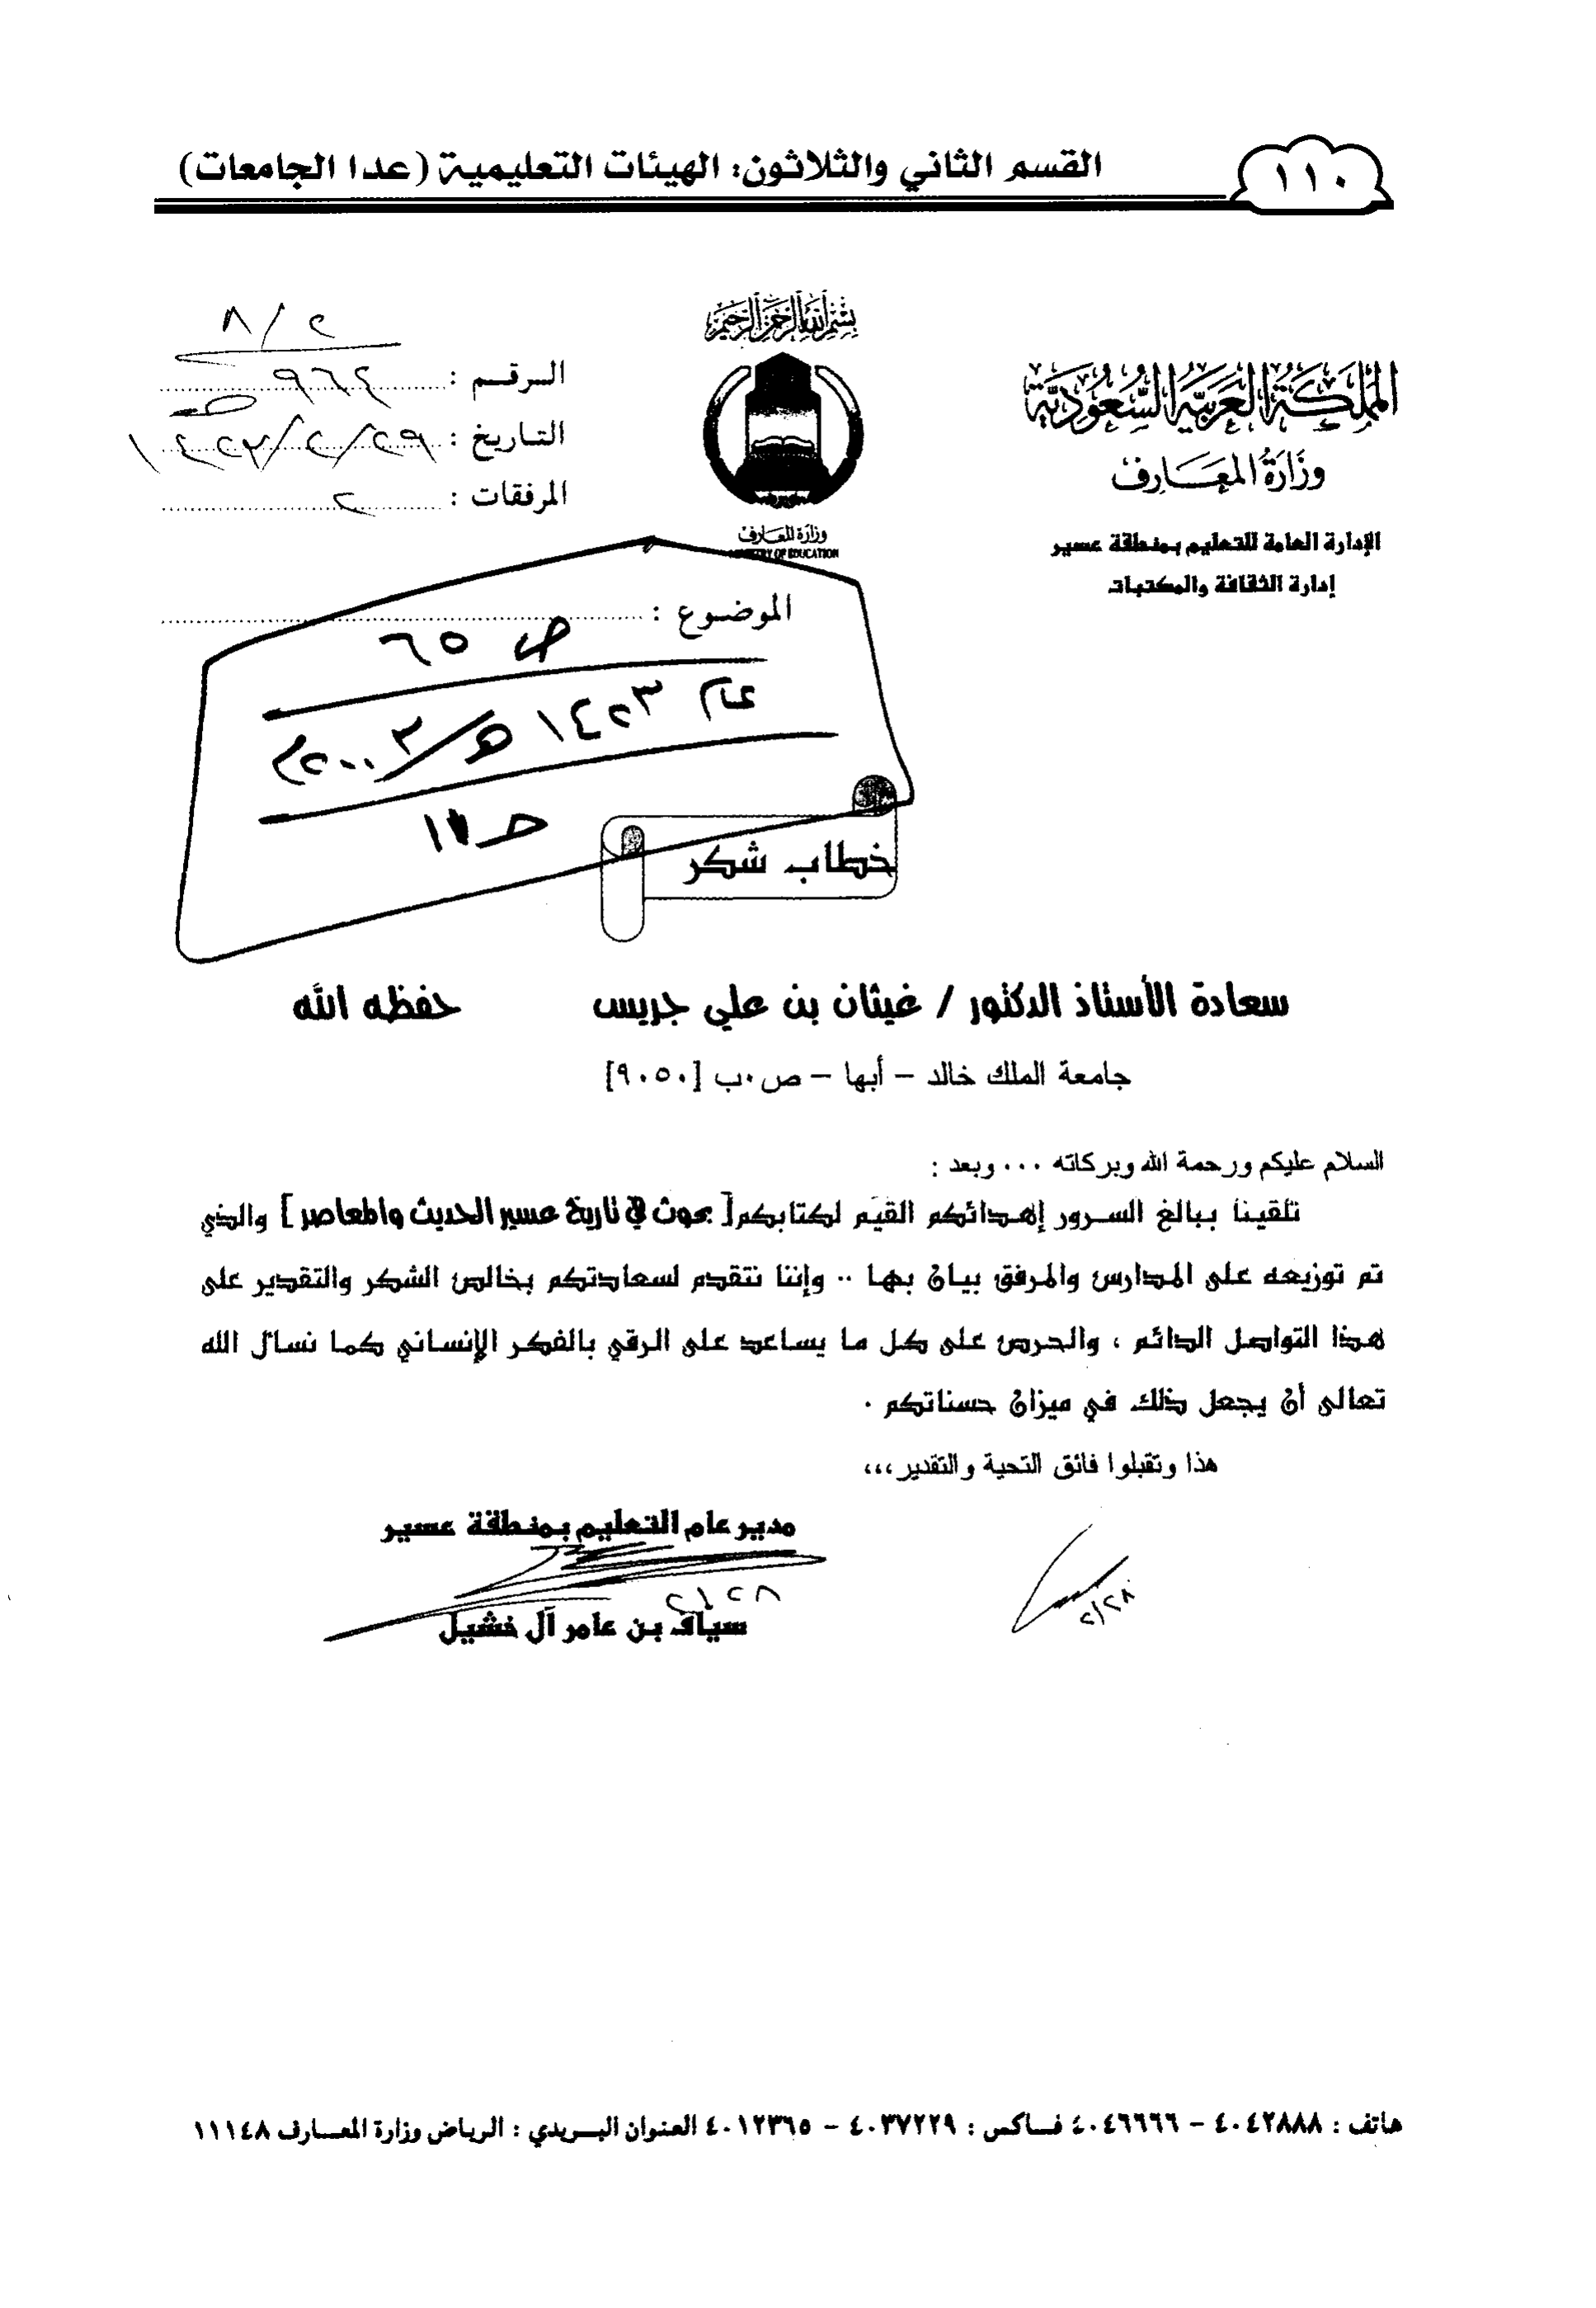 ١١٠
القسم الثاني والثلاثون: الهيئات التعليمية (عدا الجامعات)
بسم الله الرحمن الرحيم
المملكة العربية السعودية
وزارة المعارف
الإدارة العامة للتعليم بمنطقة عسير
إدارة الثقافة والمكتبات
وزارة المعارف
MINISTRY OF EDUCATION
٨/٢
الرقم :
التاريخ : ٢٩/٢/١٤٢٣
المرفقات : ٢
الموضوع :
ص ٦٥
عام ١٤٢٣هـ/٢٠٠٣م
خطاب شكر
سعادة الأستاذ الدكتور / غيثان بن علي جريس حفظه الله
جامعة الملك خالد – أبها – ص.ب [٩٠٥٠]
السلام عليكم ورحمة الله وبركاته ... وبعد :
تلقينا ببالغ السرور إهدائكم القيّم لكتابكم [ بحوث في تاريخ عسير الحديث والمعاصر ] والذي
تم توزيعه على المدارس والمرفق بيان بها .. وإننا نتقدم لسعادتكم بخالص الشكر والتقدير على
هذا التواصل الدائم ، والحرص على كل ما يساعد على الرقي بالفكر الإنساني كما نسأل الله
تعالى أن يجعل ذلك في ميزان حسناتكم .
هذا وتقبلوا فائق التحية والتقدير،،،
مدير عام التعليم بمنطقة عسير
٢/٢٨
سياف بن عامر آل خشيل
٢/٢٨
هاتف : ٤٠٤٢٨٨٨ – ٤٠٤٦٦٦٦ فاكس : ٤٠٣٧٢٢٩ – ٤٠١٢٣٦٥ العنوان البريدي : الرياض وزارة المعارف ١١١٤٨